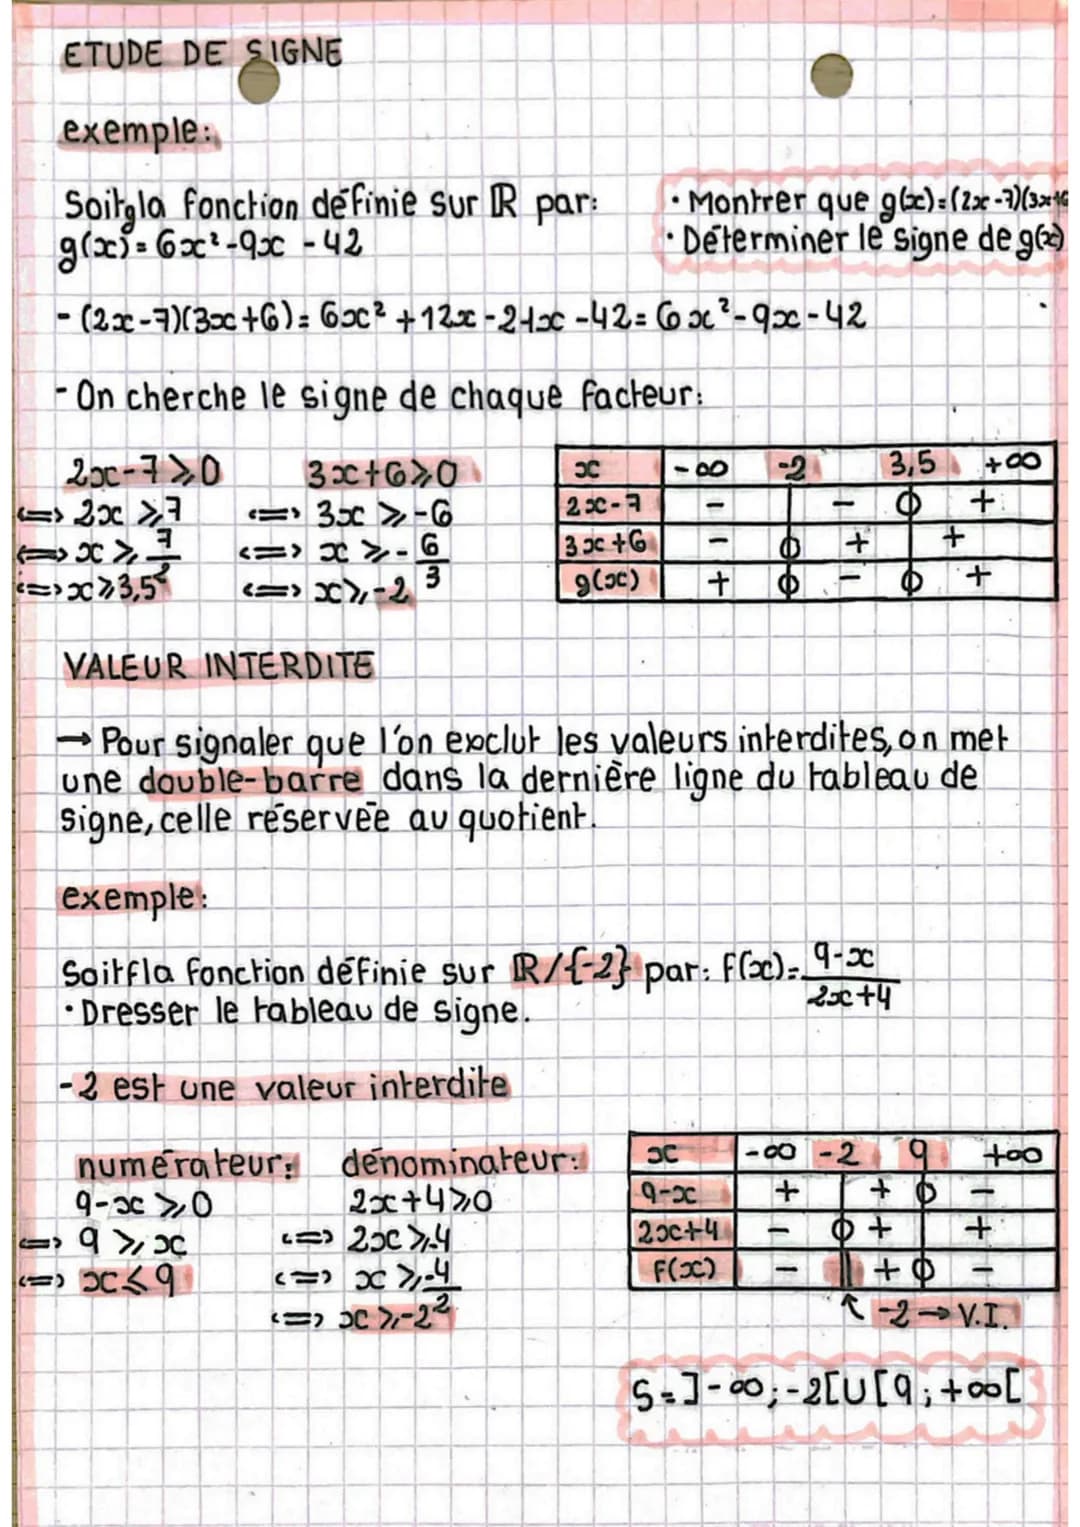 ETUDE DE SIGNE
exemple:
Soit g la fonction définie sur ℝ par:
g(x) = 6x² - 9x - 42
• Montrer que g(x) = (2x-7)(3x+6
• Déterminer le signe de g(x)
- (2x-7)(3x+6) = 6x² + 12x - 21x - 42 = 6x² - 9x - 42
- On cherche le signe de chaque facteur:
2x-7 ⩾ 0
<=> 2x ⩾ 7
<=> x ⩾ 7/2
<=> x ⩾ 3,5
3x+6 ⩾ 0
<=> 3x ⩾ -6
<=> x ⩾ -6/3
<=> x ⩾ -2
x -∞ -2 3,5 +∞
2x-7 - - 0 +
3x+6 - 0 + +
g(x) + 0 - 0 +
VALEUR INTERDITE
→ Pour signaler que l'on exclut les valeurs interdites, on met
une double-barre dans la dernière ligne du tableau de
signe, celle réservée au quotient.
exemple:
Soit f la fonction définie sur ℝ/{-2} par: f(x) = 9-x / 2x+4
• Dresser le tableau de signe.
-2 est une valeur interdite
numérateur:
9-x ⩾ 0
<=> 9 ⩾ x
<=> x ⩽ 9
dénominateur:
2x+4 ⩾ 0
<=> 2x ⩾ -4
<=> x ⩾ -4/2
<=> x ⩾ -2
x -∞ -2 9 +∞
9-x + + 0 -
2x+4 - 0 + +
f(x) - || + 0 -
↑ -2 → V.I.
S = ]-∞; -2[ U [9; +∞[